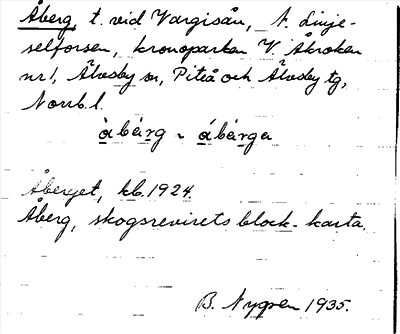 Åberg, t. vid Vargisån, N. Linje-
selforsen, kronoparken V. Åkroken
nr 1, Älvsby sn, Piteå och Älvsby tg,
Norrb. l.
àbär̀g - ábär̀ga
Åberget, kb. 1924.
Åberg, skogsrevirets block-karta.
B. Nygren 1935.